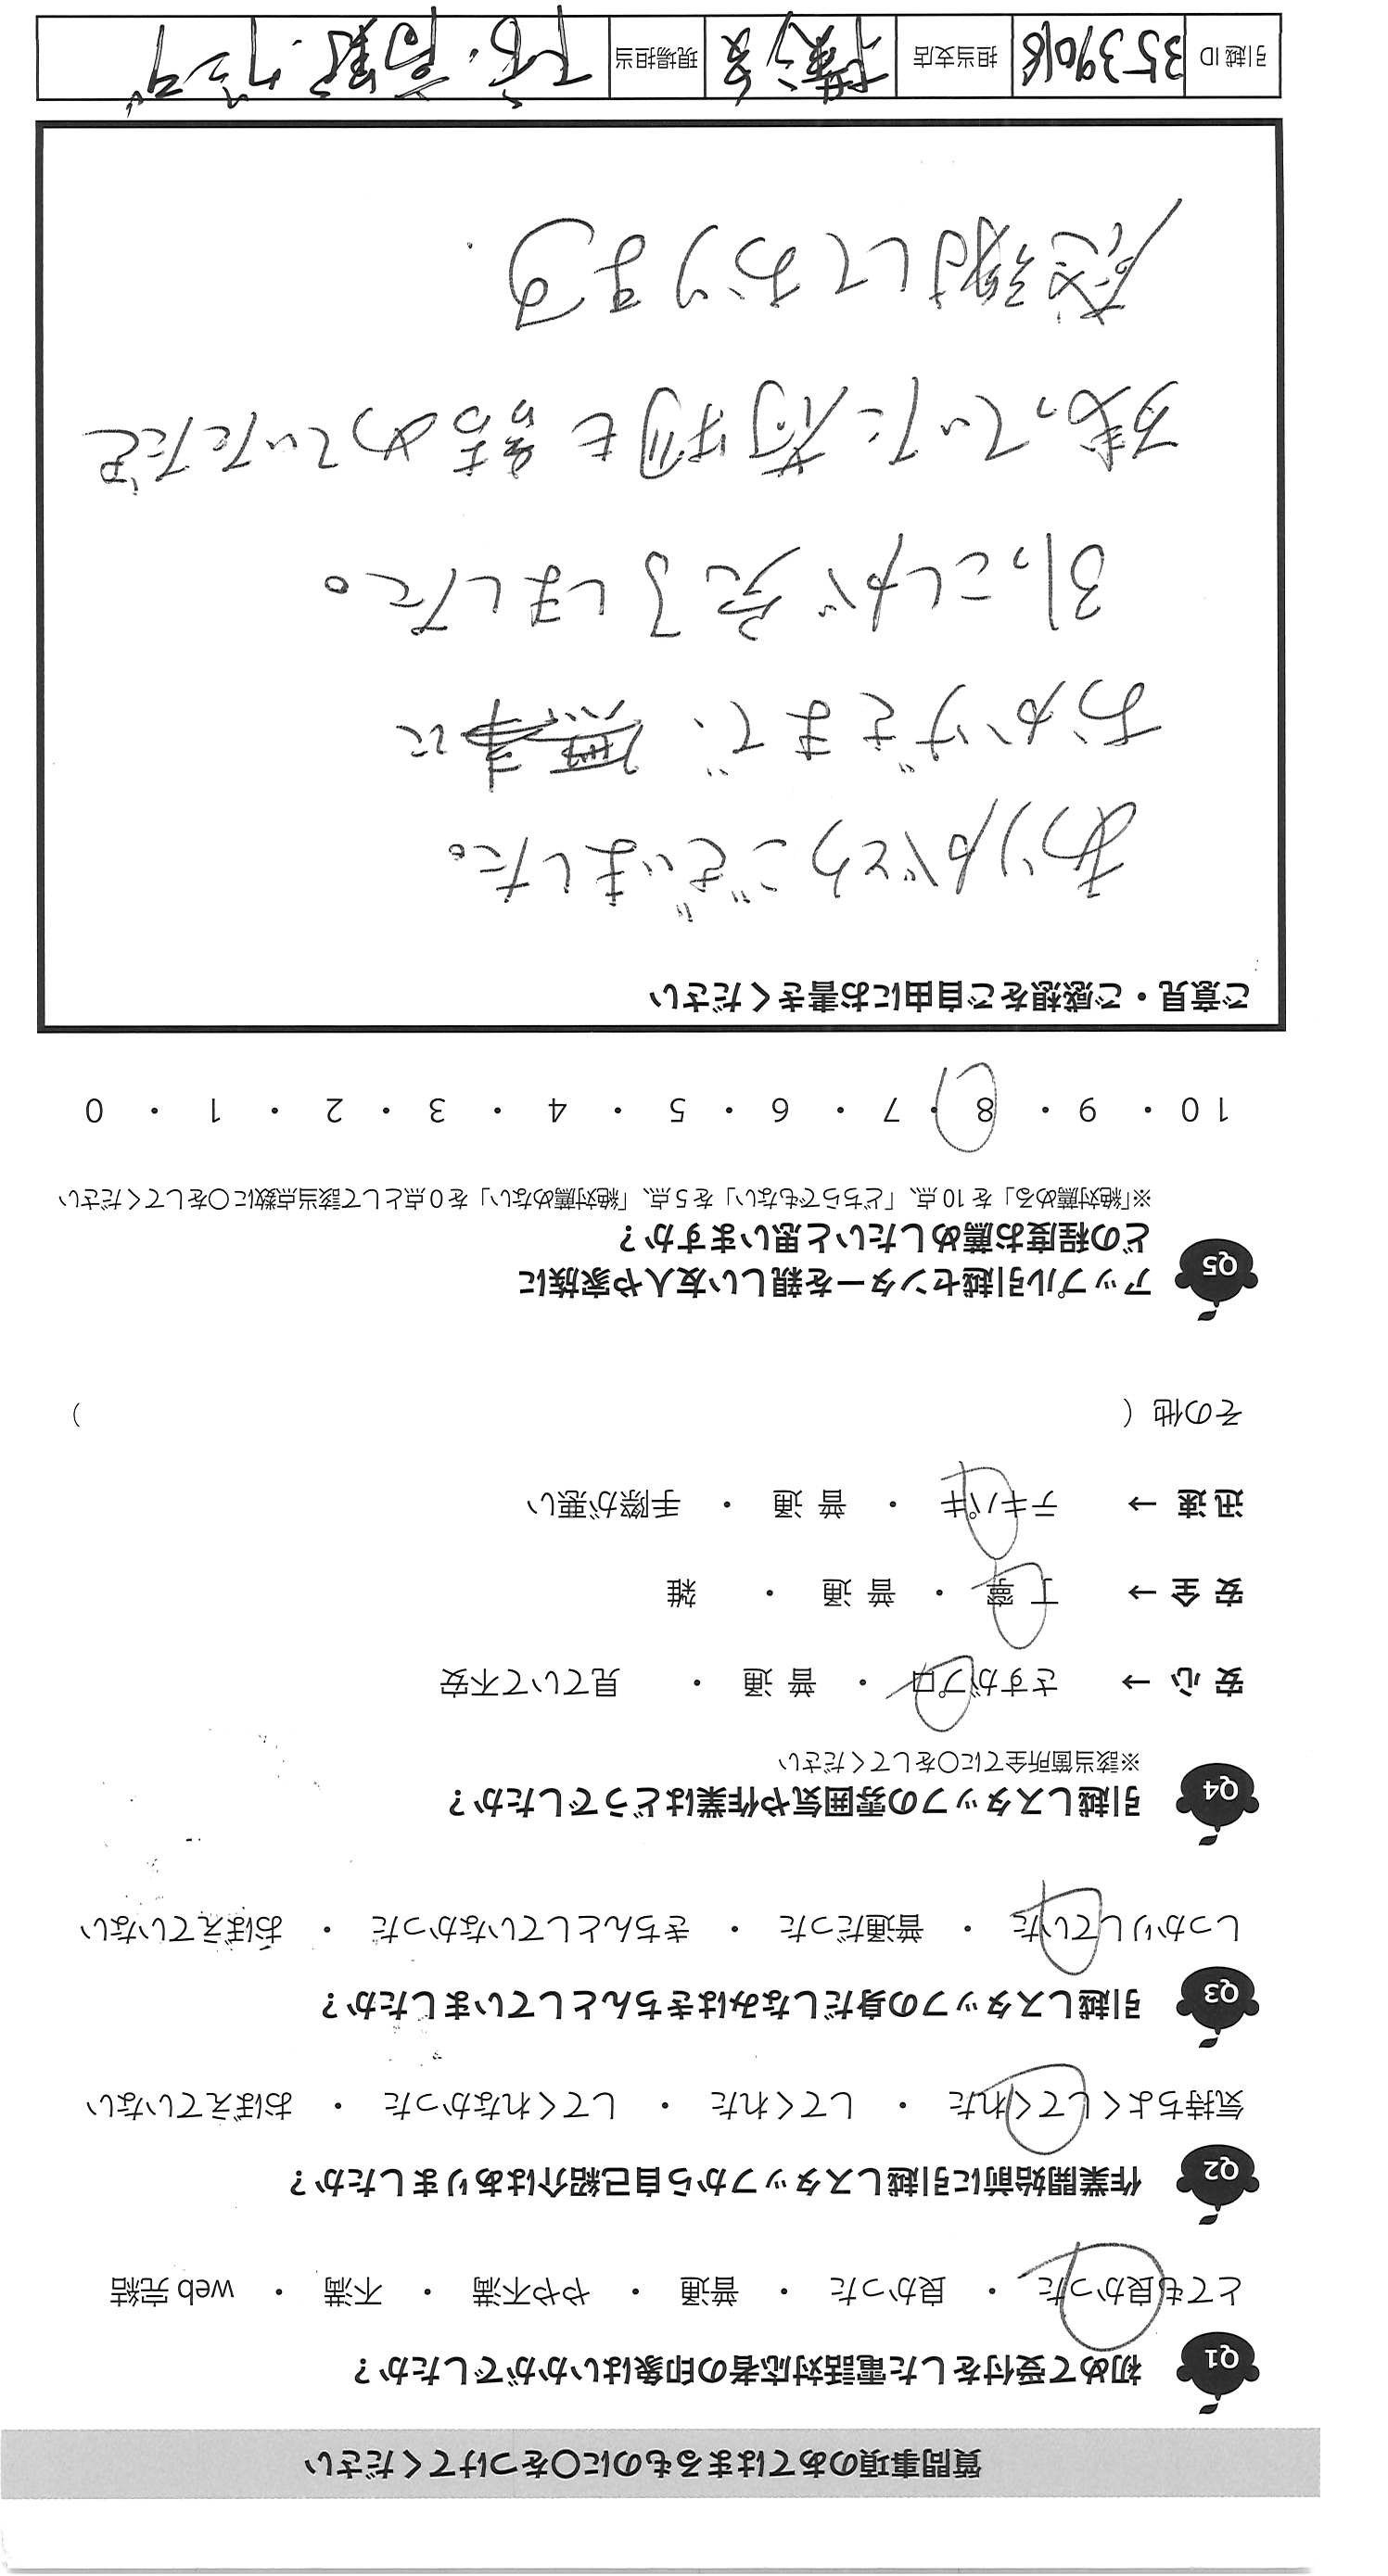 質問事項のあてはまるものに〇をつけてください
Q1 初めて受付をした電話対応者の印象はいかがでしたか？
とても良かった ・ 良かった ・ 普通 ・ やや不満 ・ 不満 ・ web 完結
Q2 作業開始前に引越しスタッフから自己紹介はありましたか？
気持ちよくしてくれた ・ してくれた ・ してくれなかった ・ おぼえていない
Q3 引越しスタッフの身だしなみはきちんとしていましたか？
しっかりしていた ・ 普通だった ・ きちんとしていなかった ・ おぼえていない
Q4 引越しスタッフの雰囲気や作業はどうでしたか？
※該当箇所全てに〇をしてください
安 心 → さすがプロ ・ 普 通 ・ 見ていて不安
安 全 → 丁 寧 ・ 普 通 ・ 雑
迅 速 → テキパキ ・ 普 通 ・ 手際が悪い
その他（ ）
Q5 アップル引越センターを親しい友人や家族に
どの程度お薦めしたいと思いますか？
※「絶対薦める」を 10 点、「どちらでもない」を 5 点、「絶対薦めない」を 0 点として該当点数に〇をしてください
10 ・ 9 ・ 8 ・ 7 ・ 6 ・ 5 ・ 4 ・ 3 ・ 2 ・ 1 ・ 0
ご意見・ご感想をご自由にお書きください
ありがとうございました。
おかげさまで、無事に
引っこしが完了しました。
残っていた荷物も詰めていただき
感謝しております.
引越 ID 3539018 担当支店 横浜 現場担当